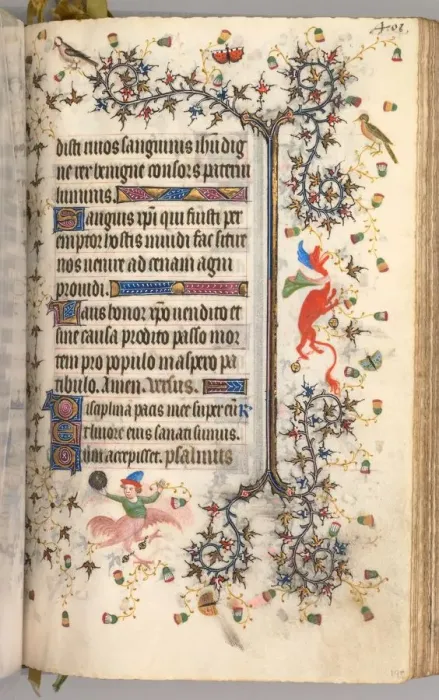 401.
disti nivos sanguinis ihu dig
ne rer benigne consors paterni
luminis.
Sanguis xpi qui fuisti per
emptor hostis mundi fac sitire
nos uenire ad cenam agni
prouidi.
Laus honor xpo uendito et
sine causa prodito passo mor
tem pro populo in aspero pa
tibulo. Amen. Versus.
Disciplina pacis nre super eu R
Et liuore eius sanati sumus.
Cum accepisset. psalmus